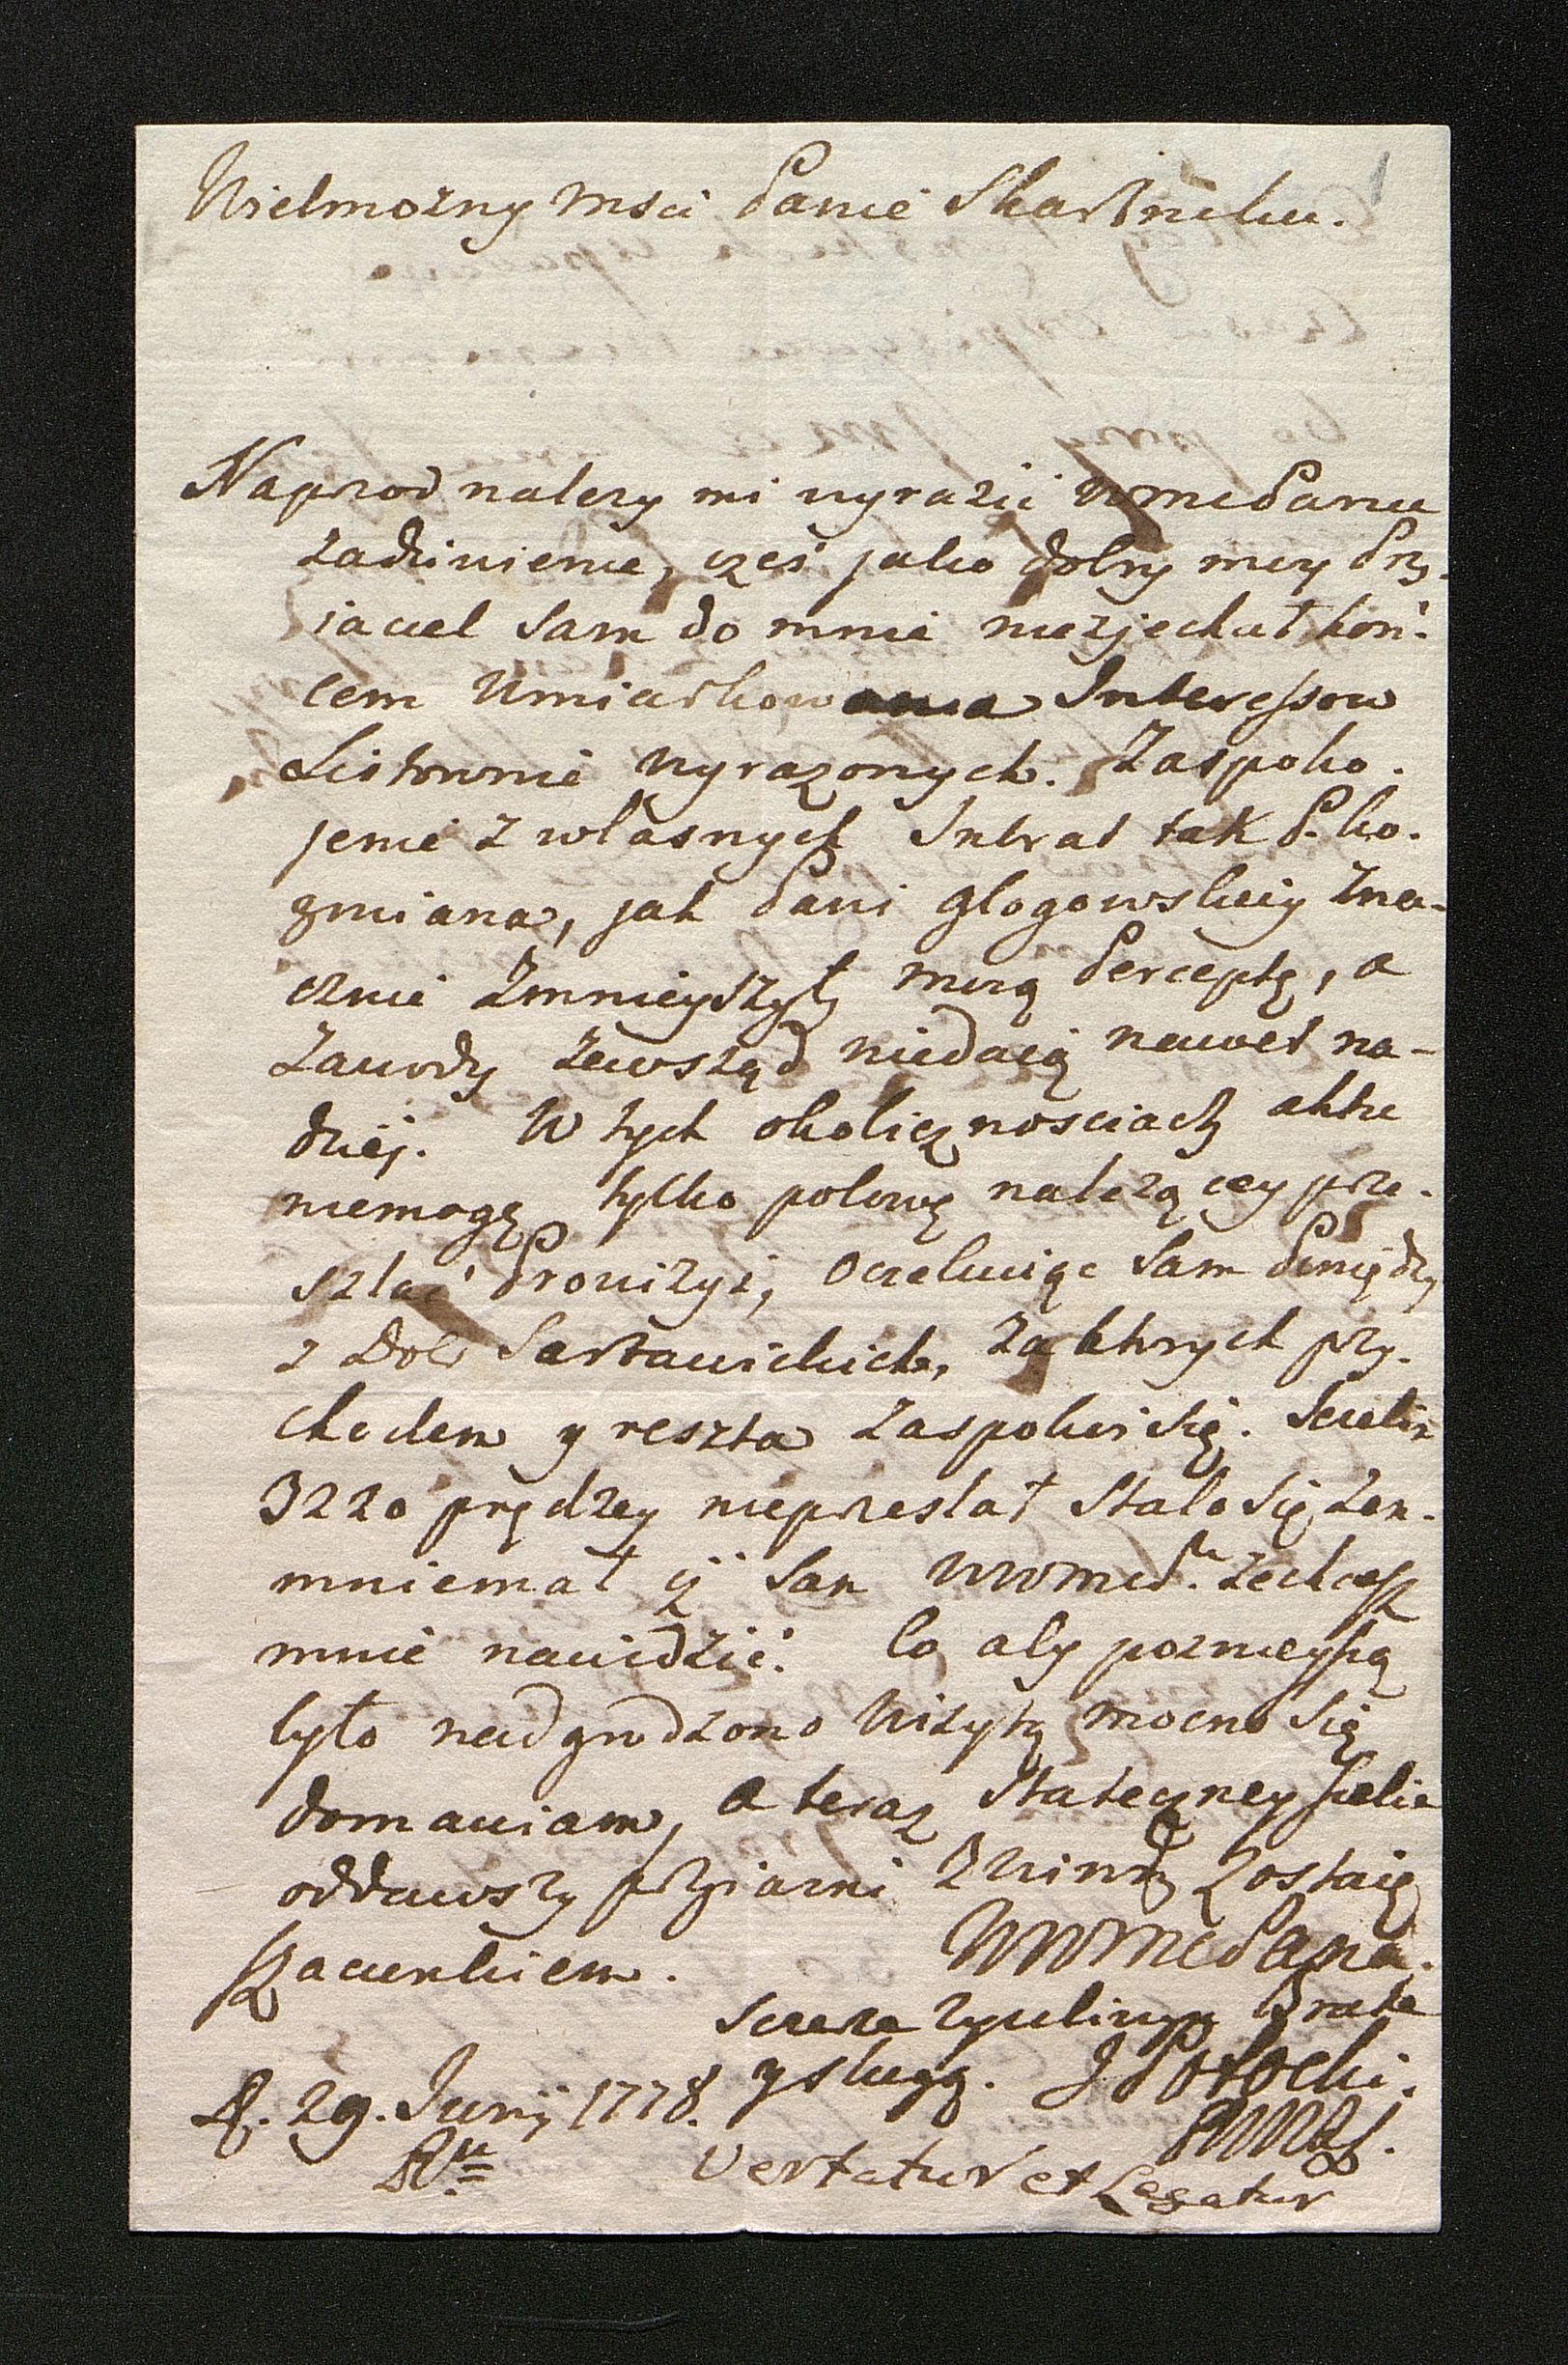 Wielmozny Msci Panie Skarbniku.
Naprzod nalezy mi wyrazić WmcPanu
zadziwienie, cześ jako dobry moy Przy-
iaciel sam do mnie niezjechał koń-
cem Umiarkowania Interessow
Listownie wyrazonych. Zaspoko-
jenie z własnych Intrat tak P. Ko-
zmiana, jak Pani Glogowskiey Zna-
cznie Zmnieyszyły moią Perceptę, a
Zawody zewsząd niedaią nawet na-
dziej. W tych okolicznosciach
niemogę tylko połowę nalezącey prze-
szlać Prowizyi, Oczekuiąc sam Pieniędzy
z Dobr Sartawickich, za ktorych przy-
chodem y reszta zaspokoi się.
3220 prędzey nieprzesłał Stało się zem
mniemał iż sam WWmcP. zechcesz
mnie nawidzić. Co aby poznieyszą
było nadgrodzono Wizytą mocno się
domawiam, a teraz Stateczney siebie
oddawszy przyiazni Zostaię
szacunkiem. WWmcPana.
Szczerze zyczliwym Bratem
y sługą. J Potocki.
D. 29. Junij 1778.
Vertatur et Legatur